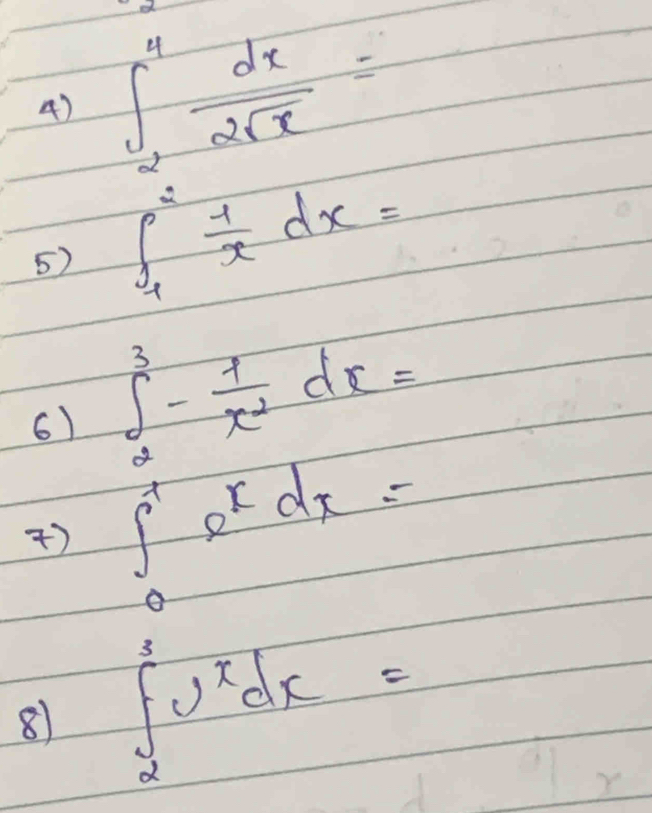 4) ∫₂⁴ dx / 2√x =
5) ∫₁² 1/x dx =
6) ∫₂³ - 1/x² dx =
7) ∫₀¹ eˣ dx =
8) ∫₂³ υˣ dx =